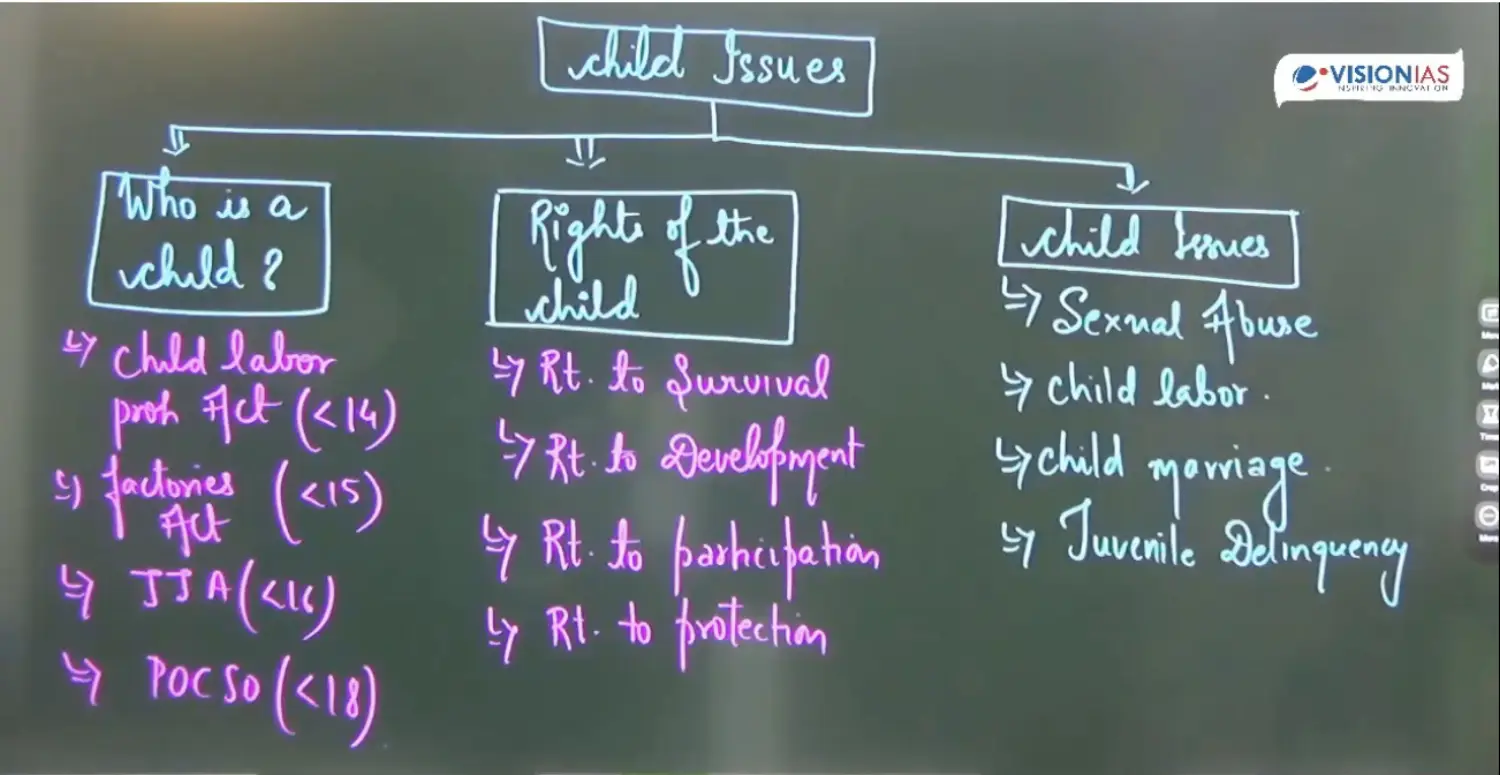 child Issues
VISIONIAS
INSPIRING INNOVATION
Who is a
child?
child labor
proh Act (<14)
factories (<15)
Act
JJA (<16)
POCSO (<18)
Rights of the
child
Rt. to Survival
Rt. to Development
Rt. to participation
Rt. to protection
child Issues
Sexual Abuse
child labor.
child marriage.
Juvenile Delinquency